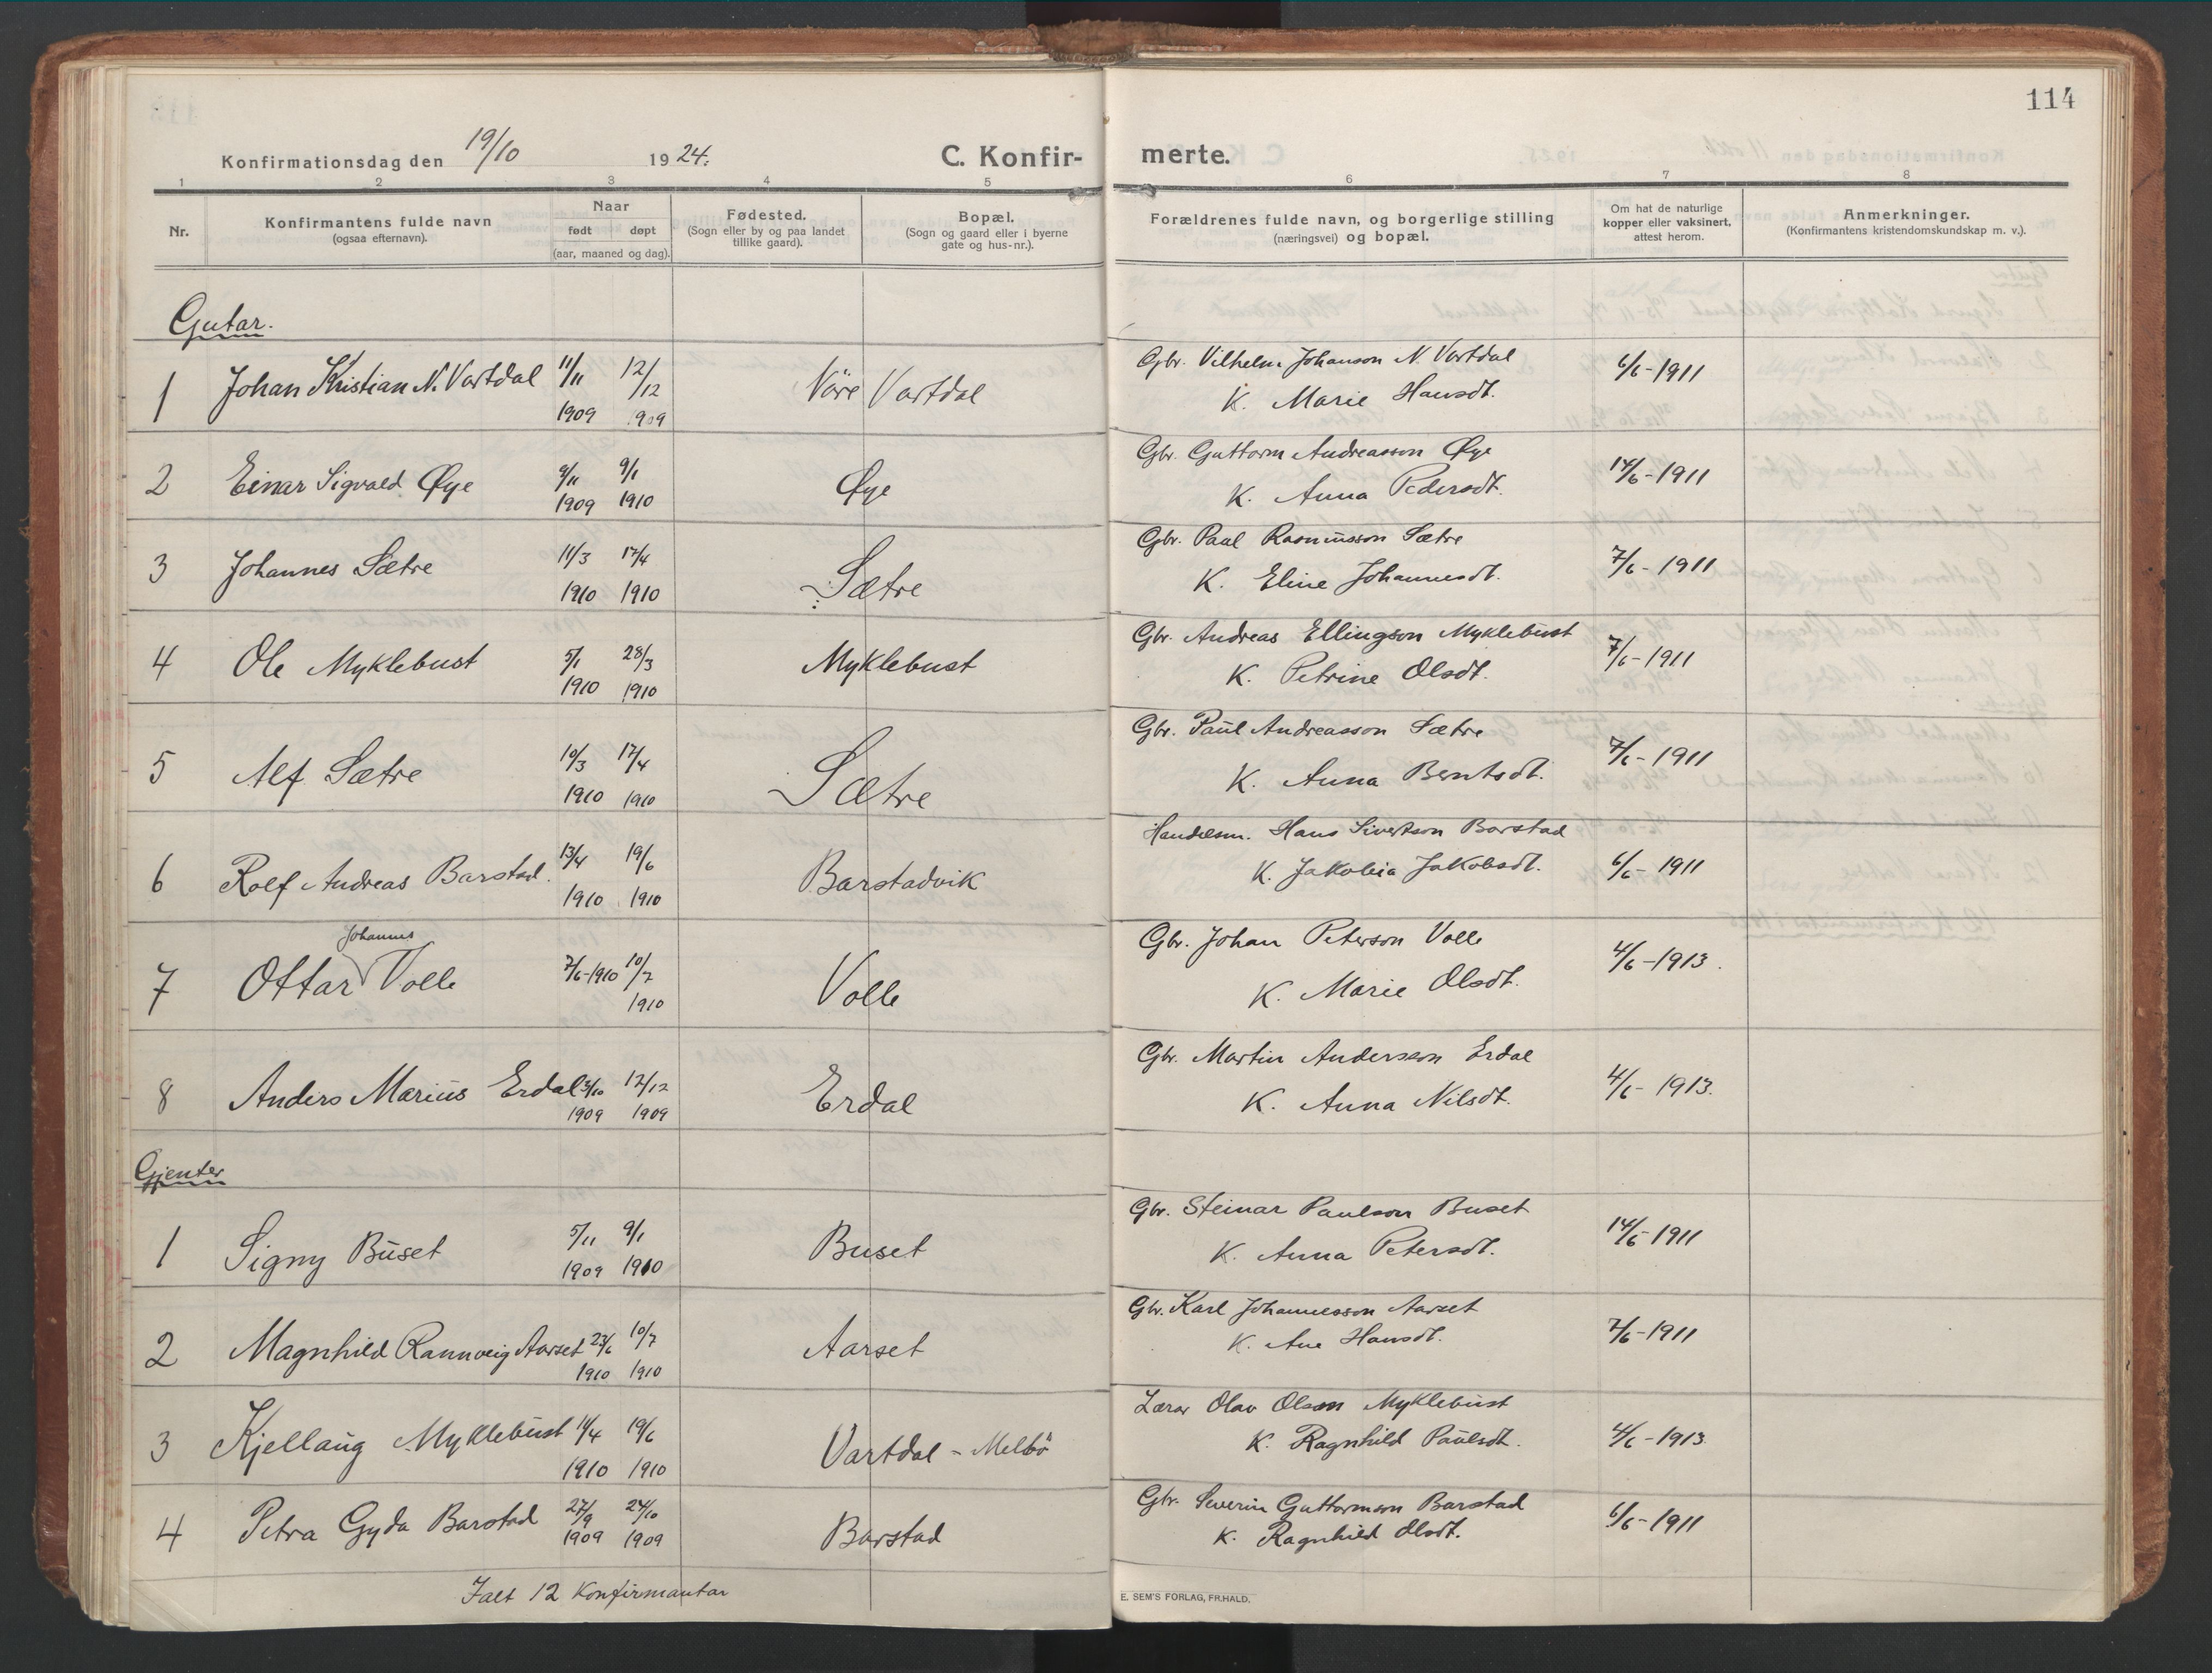 114
Konfirmationsdag den 19/10 1924.
C. Konfir-
merte.
1 2 3 4 5 6 7 8
Nr.
Konfirmantens fulde navn
(ogsaa efternavn).
Naar
født døpt
(aar, maaned og dag).
Fødested.
(Sogn eller by og paa landet
tillike gaard).
Bopæl.
(Sogn og gaard eller i byerne
gate og hus-nr.).
Forældrenes fulde navn, og borgerlige stilling
(næringsvei) og bopæl.
Om hat de naturlige
kopper eller vaksinert,
attest herom.
Anmerkninger.
(Konfirmantens kristendomskundskap m. v.).
Gutar.
1 Johan Kristian N. Vartdal 11/11 1909 12/12 1909 Nöre Vartdal
Gbr. Vilhelm Johanson N. Vartdal
K. Marie Hansdt.
6/6-1911
2 Einar Sigvald Øye 9/11 1909 9/1 1910 Øye
Gbr. Guttorm Andreasson Øye
K. Anna Pedersdt.
14/6-1911
3 Johannes Sætre 11/3 1910 17/4 1910 Sætre
Gbr. Paul Rasmusson Sætre
K. Eline Johannesdt.
7/6-1911
4 Ole Myklebust 5/1 1910 28/3 1910 Myklebust
Gbr. Andreas Ellingson Myklebust
K. Petrine Olsdt.
7/6-1911
5 Alf Sætre 10/3 1910 17/4 1910 Sætre
Gbr. Paul Andreasson Sætre
K. Anna Berntsdt.
7/6-1911
6 Rolf Andreas Barstad. 13/4 1910 19/6 1910 Barstadvik
Handelsm. Hans Sivertson Barstad
K. Jakobia Jakobsdt.
6/6-1911
Johannes
7 Ottar Volle 7/6-1910 10/7 1910 Volle
Gbr. Johan Peterson Volle
K. Marie Olsdt.
4/6-1913.
8 Anders Marius Erdal 3/10 1909 12/12 1909 Erdal
Gbr. Martin Andersson Erdal
K. Anna Nilsdt.
4/6-1913.
Gjenter
1 Signy Buset 5/11 1909 9/1 1910 Buset
Gbr. Steinar Paulson Buset
K. Anna Petersdt.
14/6-1911
2 Magnhild Rannveig Aarset 23/6 1910 10/7 1910 Aarset
Gbr. Karl Johannesson Aarset
K. Ane Hansdt.
7/6-1911
3 Kjellaug Myklebust 11/4 1910 19/6 1910 Vartdal - Melbö
Lærar Olav Olson Myklebust
K. Ragnhild Paulsdt.
4/6-1913.
4 Petra Gyda Barstad 27/9 1909 24/10 1909 Barstad
Gbr. Severin Guttormson Barstad
K. Ragnhild Olsdt.
6/6-1911
Ialt 12 Konfirmantar
E. SEM'S FORLAG, FR.HALD.